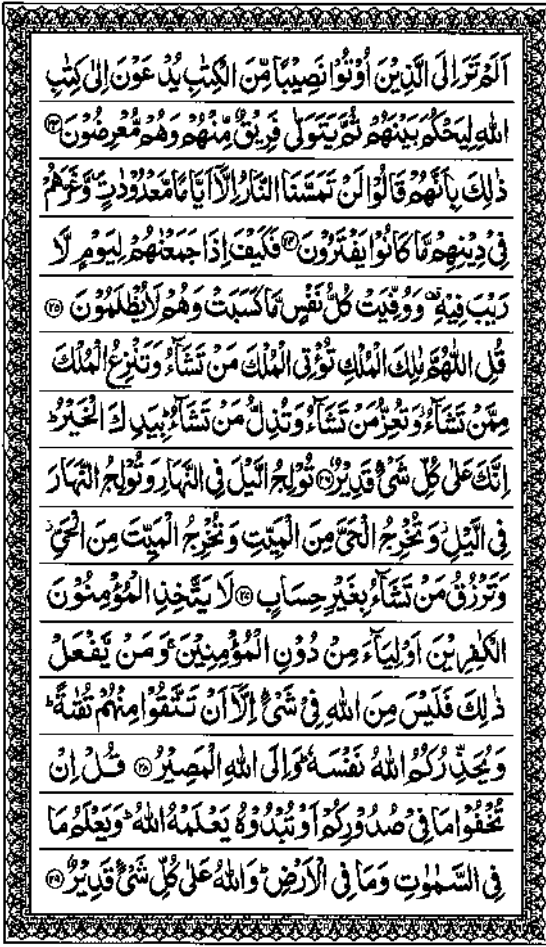 اَلَمْ تَرَ اِلَى الَّذِيْنَ اُوْتُوْا نَصِيْبًا مِّنَ الْكِتٰبِ يُدْعَوْنَ اِلٰى كِتٰبِ
اللّٰهِ لِيَحْكُمَ بَيْنَهُمْ ثُمَّ يَتَوَلّٰى فَرِيْقٌ مِّنْهُمْ وَهُمْ مُّعْرِضُوْنَ ۝۲۳
ذٰلِكَ بِاَنَّهُمْ قَالُوْا لَنْ تَمَسَّنَا النَّارُ اِلَّاۤ اَيَّامًا مَّعْدُوْدٰتٍ ۪ وَّغَرَّهُمْ
فِيْ دِيْنِهِمْ مَّا كَانُوْا يَفْتَرُوْنَ ۝۲۴ فَكَيْفَ اِذَا جَمَعْنٰهُمْ لِيَوْمٍ لَّا
رَيْبَ فِيْهِ ۫ وَوُفِّيَتْ كُلُّ نَفْسٍ مَّا كَسَبَتْ وَهُمْ لَا يُظْلَمُوْنَ ۝۲۵
قُلِ اللّٰهُمَّ مٰلِكَ الْمُلْكِ تُؤْتِي الْمُلْكَ مَنْ تَشَآءُ وَتَنْزِعُ الْمُلْكَ
مِمَّنْ تَشَآءُ ؗ وَتُعِزُّ مَنْ تَشَآءُ وَتُذِلُّ مَنْ تَشَآءُ ؕ بِيَدِكَ الْخَيْرُ ؕ
اِنَّكَ عَلٰى كُلِّ شَيْءٍ قَدِيْرٌ ۝۲۶ تُوْلِجُ الَّيْلَ فِي النَّهَارِ وَتُوْلِجُ النَّهَارَ
فِي الَّيْلِ ؗ وَتُخْرِجُ الْحَيَّ مِنَ الْمَيِّتِ وَتُخْرِجُ الْمَيِّتَ مِنَ الْحَيِّ ؗ
وَتَرْزُقُ مَنْ تَشَآءُ بِغَيْرِ حِسَابٍ ۝۲۷ لَا يَتَّخِذِ الْمُؤْمِنُوْنَ
الْكٰفِرِيْنَ اَوْلِيَآءَ مِنْ دُوْنِ الْمُؤْمِنِيْنَ ۚ وَمَنْ يَّفْعَلْ
ذٰلِكَ فَلَيْسَ مِنَ اللّٰهِ فِيْ شَيْءٍ اِلَّاۤ اَنْ تَتَّقُوْا مِنْهُمْ تُقٰىةً ؕ
وَيُحَذِّرُكُمُ اللّٰهُ نَفْسَهٗ ؕ وَاِلَى اللّٰهِ الْمَصِيْرُ ۝۲۸ قُلْ اِنْ
تُخْفُوْا مَا فِيْ صُدُوْرِكُمْ اَوْ تُبْدُوْهُ يَعْلَمْهُ اللّٰهُ ؕ وَيَعْلَمُ مَا
فِي السَّمٰوٰتِ وَمَا فِي الْاَرْضِ ؕ وَاللّٰهُ عَلٰى كُلِّ شَيْءٍ قَدِيْرٌ ۝۲۹